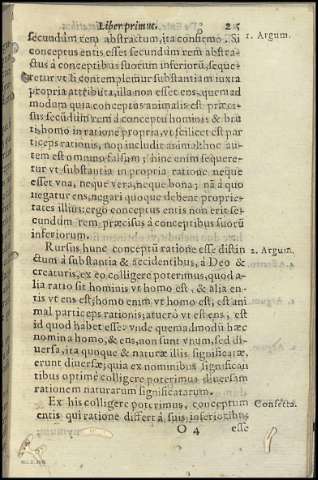 Liber primus. 215
secundùm rem abstractum, ita confirmo. Si 1. Argum.
conceptus entis esset secundùm rem abstra-
ctus à conceptibus suorum inferiorũ, seque-
retur vt si contemplemur substantiam iuxta
propria attributa, illa non esset ens, quemad
modum quia conceptus animalis est præci-
sus secũdùm rem à conceptu hominis & bru
ti, homo in ratione propria, vt scilicet est par
ticeps rationis, non includit animal: hoc au-
tem est omnino falsum; hinc enim sequere-
tur vt substantia in propria ratione neque
esset vna, neque vera, neque bona; nã à quo
negatur ens, negari quoque debent proprie-
tates illius: ergo conceptus entis non erit se-
cundùm rem præcisus à conceptibus suorũ
inferiorum.
Rursus hunc conceptũ ratione esse distin 2. Argum.
ctum à substantia & accidentibus, à Deo &
creaturis, ex eo colligere poterimus, quòd a-
lia ratio sit hominis vt homo est, & alia en-
tis vt ens est; homo enim vt homo est, est ani
mal particeps rationis; at verò vt est ens, est
id quod habet esse: vnde quemadmodũ hæc
nomina homo, & ens, non sunt vnum, sed di-
uersa, ita quoque & naturæ illis significatæ,
erunt diuersæ; quia ex nominibus significan
tibus optimè colligere poterimus diuersam
rationem naturarum significatarum.
Ex his colligere poterimus, conceptum Consecta.
entis qui ratione differt à suis inferioribus
O 4 esse